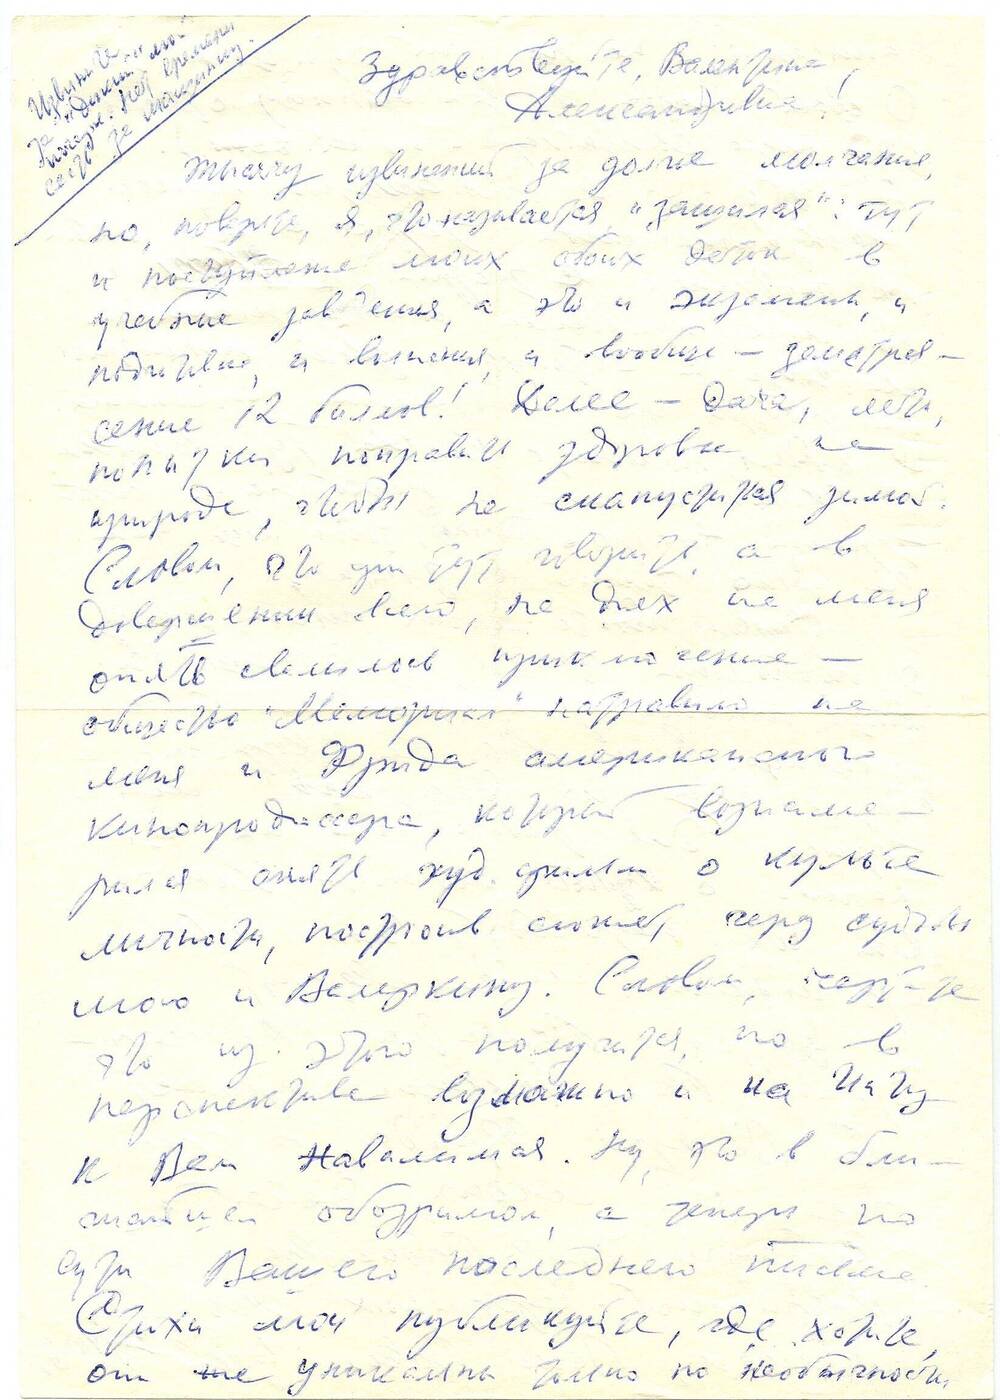 Извините
за "дикий" мой
почерк. Нет времени
сесть за машинку.
Здравствуйте, Валентина
Александровна!
Тысячу извинений за долгое молчание,
но, поверьте, я, что называется, "зашилась": тут
и поступление моих обоих деток в
учебные заведения, а это и экзамены, и
и волнения, и вообще – землетрясение
12 баллов! Далее – дача, лето,
попытки поправить здоровье на
природе, чтобы не зимой.
Словом, что уж тут говорить, а в
довершении всего, на днях на меня
опять свалилось приключение –
общество "Мемориал" направило на
меня и Фрида американского
кинопродюсера, который вознаме-
рился снять худ. фильм о культе
личности, построив сюжет через судьбы
мою и Валеркину. Словом,
что из этого получится, но в
перспективе возможно и на Инту
к Вам навалимся. Ну, это в бли-
жайшем обозримом, а теперь по
сути Вашего последнего письма.
Стихи мои публикуйте, где хотите,
они же уникальны только по необычности